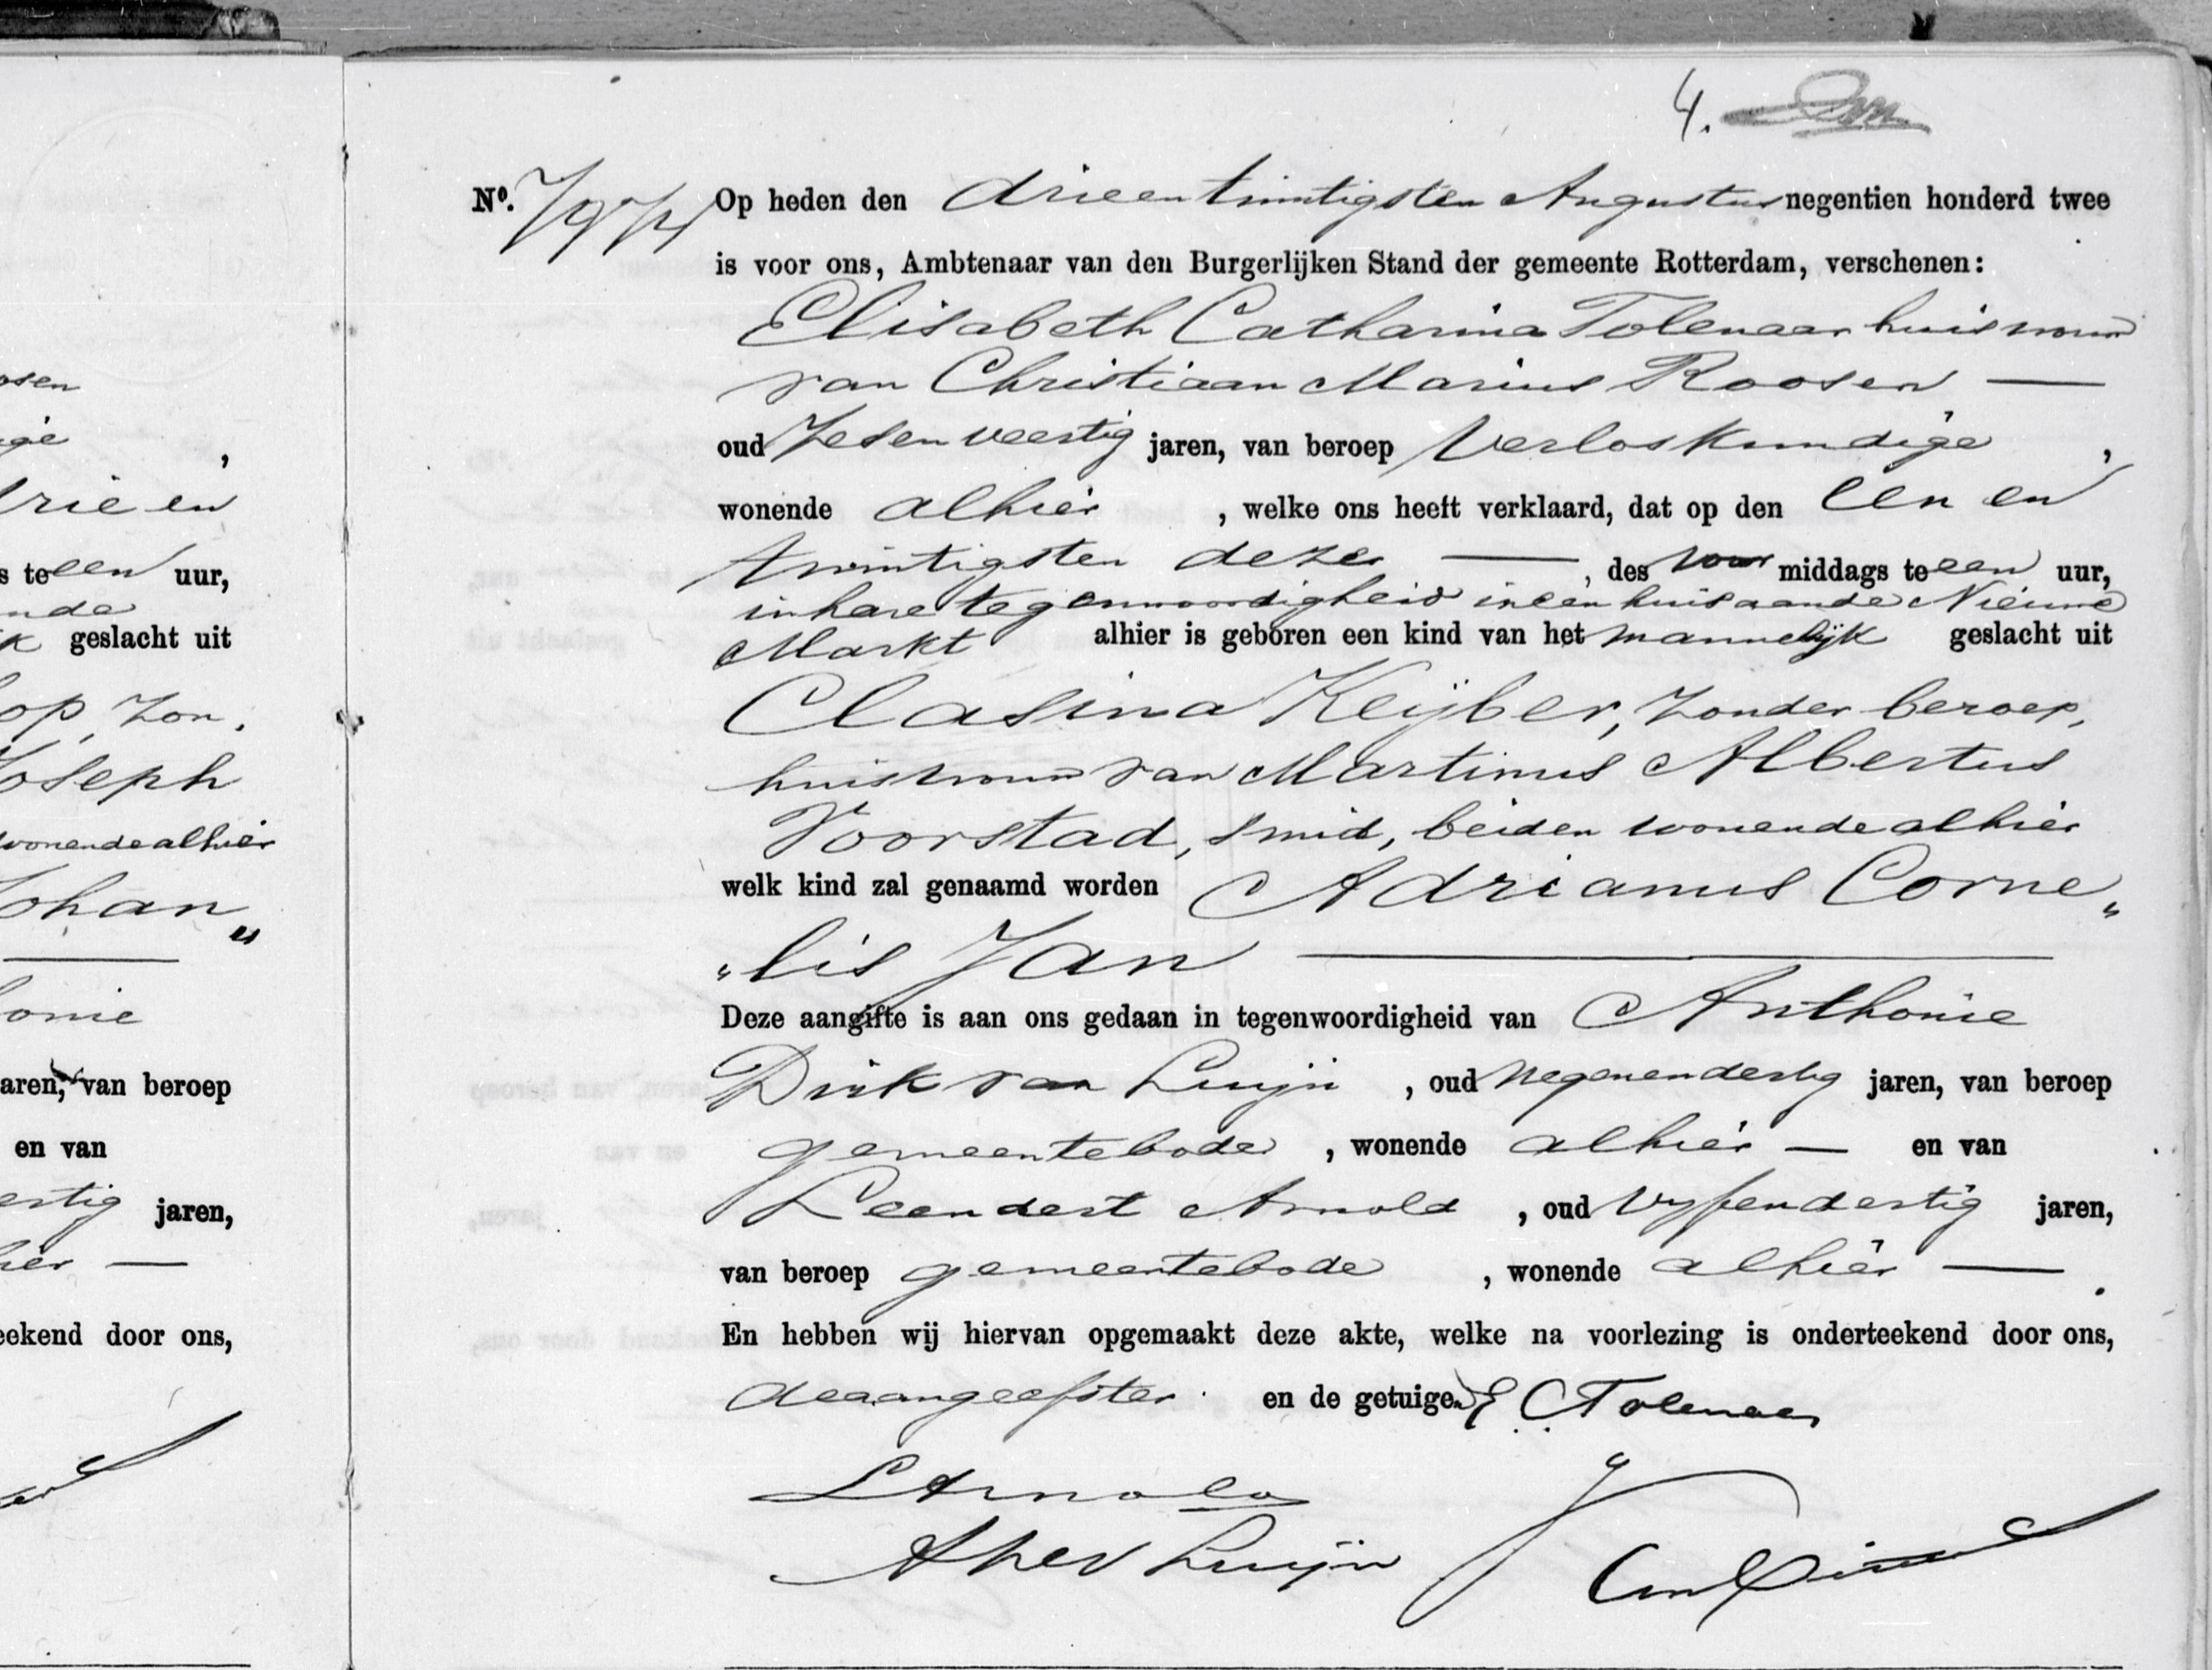 osen
ge
,
drie en
s te een uur,
nde
k geslacht uit
op, zon,
Joseph
wonende alhier
Johan„
onie
aren, van beroep
en van
ertig jaren,
hier —
eekend door ons,
4.
No. 7974 Op heden den drieentwintigsten Augustus negentien honderd twee
is voor ons, Ambtenaar van den Burgerlijken Stand der gemeente Rotterdam, verschenen:
Elisabeth Catharina Tolenaar huisvrouw
van Christiaan Marius Roosen —
oud Zesenveertig jaren, van beroep Verloskundige ,
wonende alhier , welke ons heeft verklaard, dat op den een en
twintigsten dezer — , des voor middags te een uur,
in hare tegenwoordigheid in een huis aan de Nieuwe
Markt alhier is geboren een kind van het mannelijk geslacht uit
Clasina Keijber, Zonder beroep,
huisvrouw van Martinus Albertus
Voorstad, smid, beiden wonende alhier
welk kind zal genaamd worden Adrianus Corne„
„lis Jan —
Deze aangifte is aan ons gedaan in tegenwoordigheid van Anthonie
Dirk van Luijn , oud negenendertig jaren, van beroep
gemeentebode , wonende alhier — en van
Leendert Arnold , oud vyfendertig jaren,
van beroep gemeentebode , wonende alhier — .
En hebben wij hiervan opgemaakt deze akte, welke na voorlezing is onderteekend door ons,
de aangeefster en de getuigen E C Tolenaar
L Arnold
Luijn